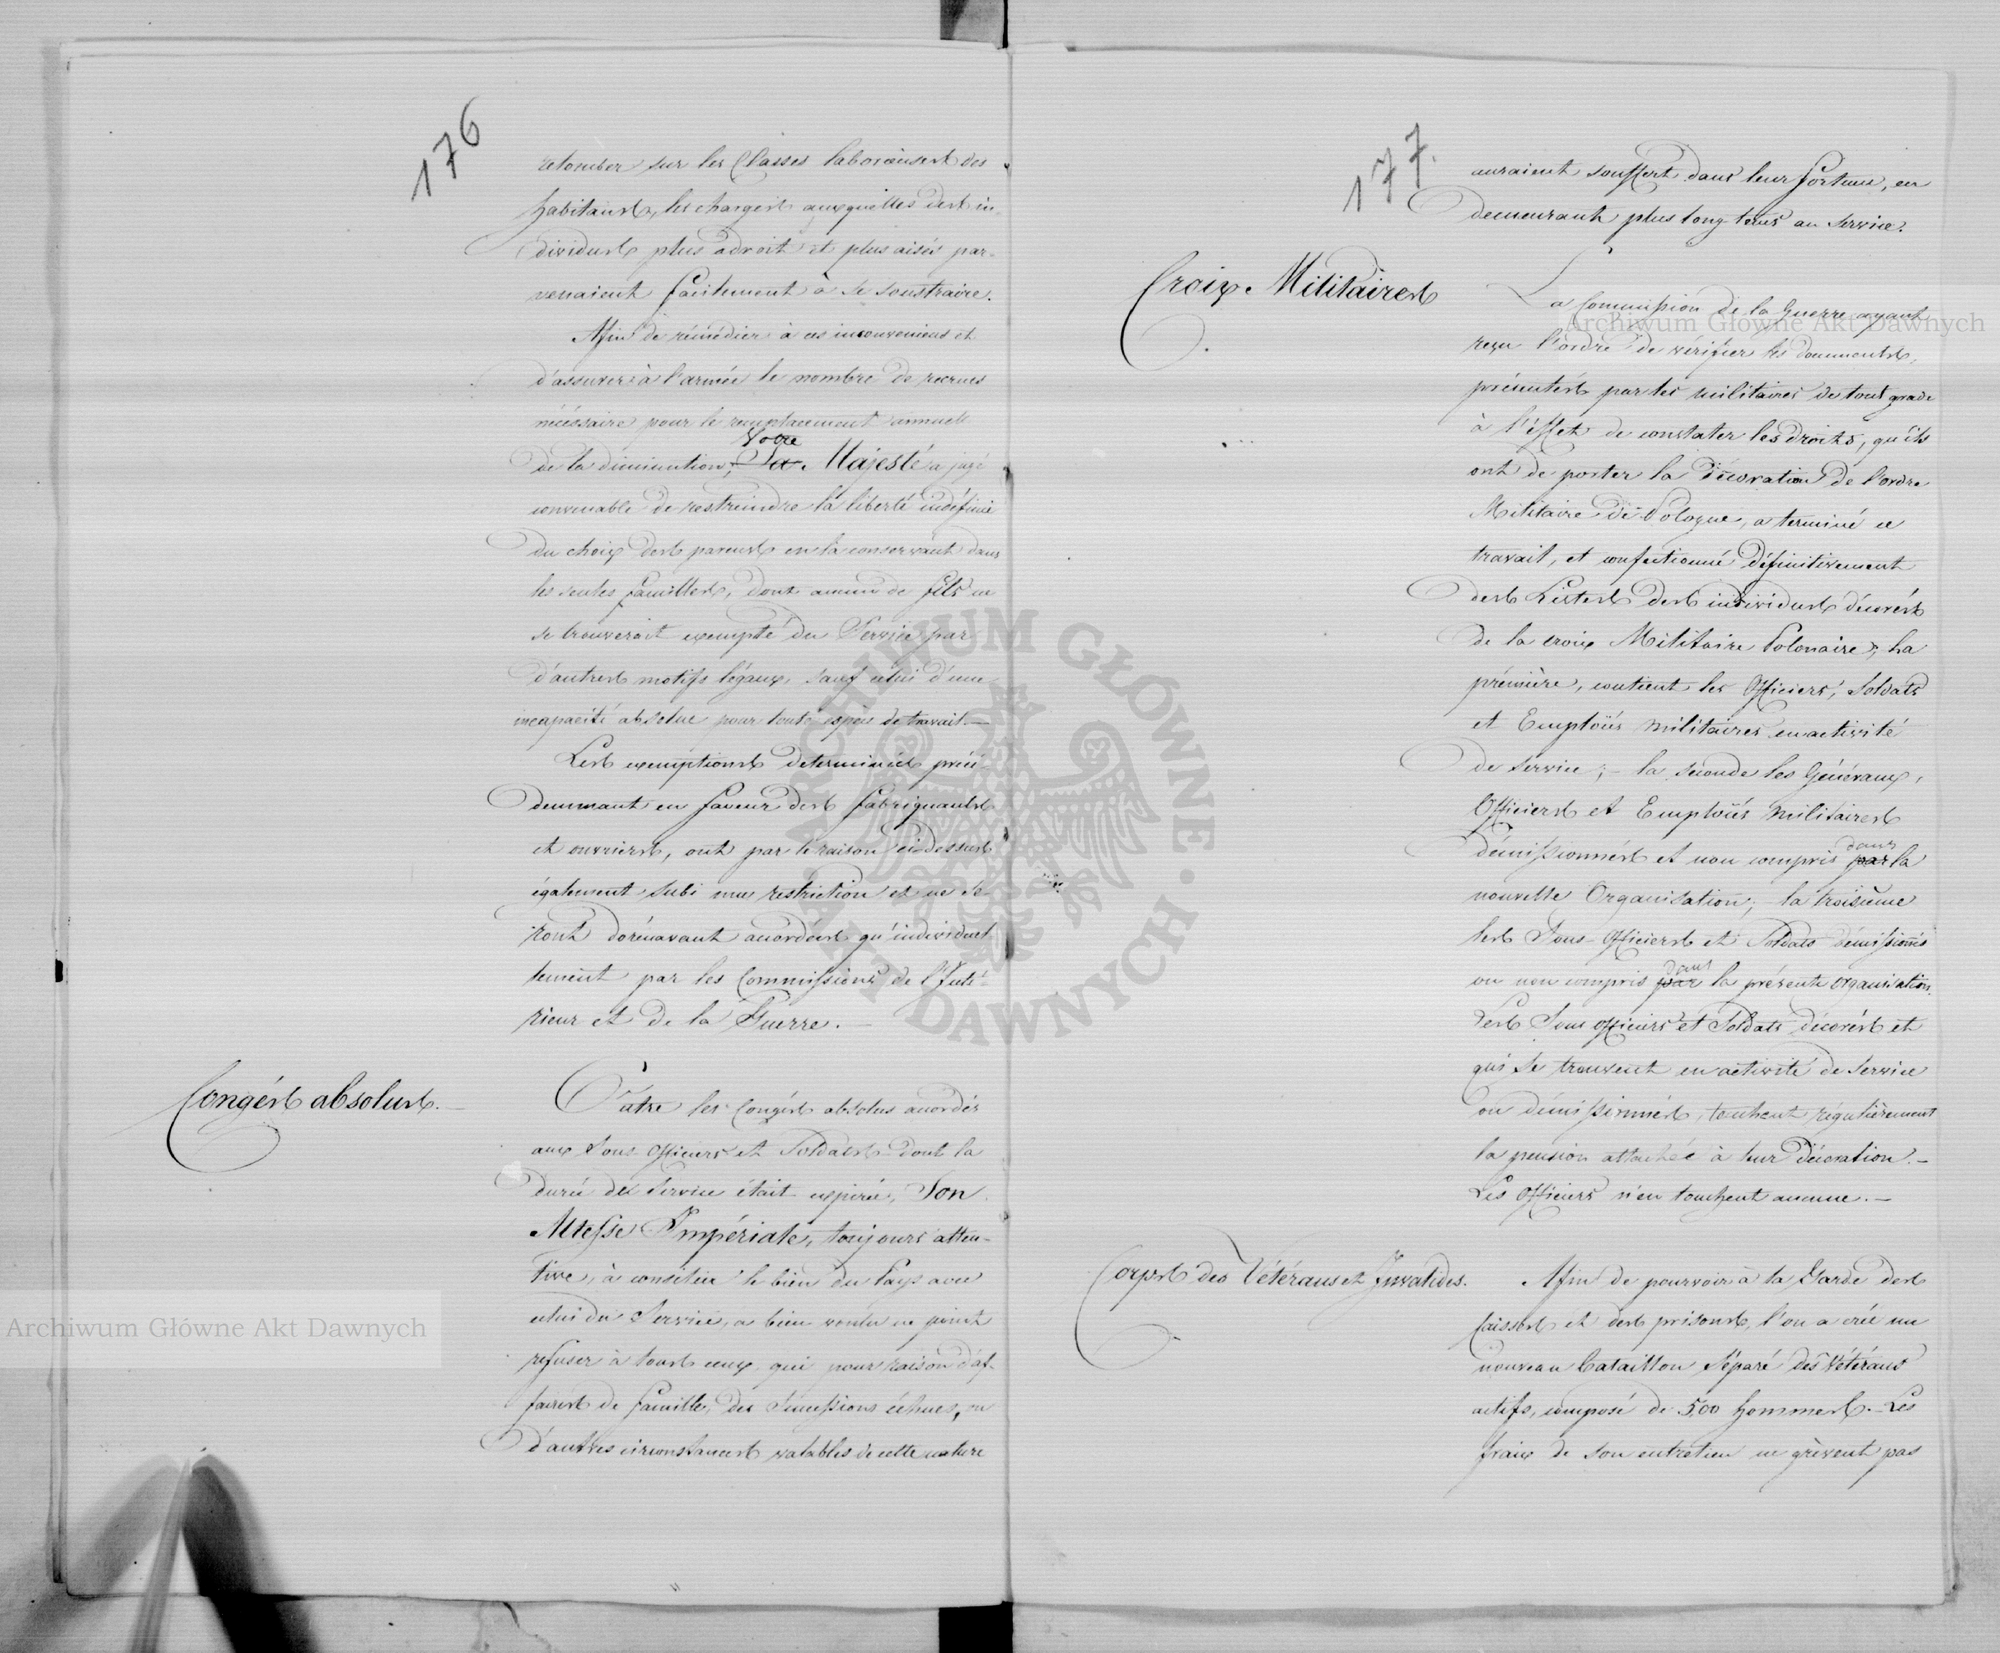 176
retomber sur les Classes laborieuses des
habitans, les charges auxquelles des in-
dividus plus adroit et plus aisés par-
venaient facilement à se soustraire.
Afin de rémédier à ces inconveniens et
d'assurer à l'armée le nombre de recrues
nécessaire pour le remplacement annuel
Votre
de la diminution, Sa Majesté a jugé
convenable de restreindre la liberté indéfinie
du choix des parens en la conservant dans
les seules familles, dont aucun de fils ne
se trouverait exempté du Service par
d'autres motifs légaux, sauf celui d'une
incapacité absolue pour toute espece de travail.—
Les exemptions determinées précé-
demment en faveur des fabriquants
et ouvriers, ont par la raison ci-dessus
également subi une restriction et ne se-
ront dorénavant accordées qu'individuel-
lement par les Commissions de l'Inté-
rieur et de la Guerre.—
Congés absolus.—
Outre les Congés absolus accordés
aux Sous Officiers et Soldats dont la
durée de Service était expirée, Son
Altesse Impériale, toujours atten-
tive, à concilier le bien du Pays avec
celui du Service, a bien voulu ne point
refuser à tous ceux qui pour raison d'af-
faires de famille, des Successions échues, ou
d'autres circonstances valables de cette nature
177.
auraient souffert dans leur fortune, en
demeurant plus long-tems au Service.
Croix Militaires
La Commission de la Guerre ayant
reçu l'ordre de vérifier les documents,
présentés par les militaires de tout grade
à l'éffet de constater les droits, qu'ils
ont de porter la décoration de l'ordre
Militaire de Pologne, a terminé ce
travail, et confectionné définitivement
des Listes des individus décorés
de la croix Militaire Polonaise; La
prémière, contient les Officiers, Soldats
et Employés militaires en activité
de service; - la seconde les Généraux,
Officiers et Employés militaires
dans
démissionnés et non compris par la
nouvelle Organisation; - la troisième
les Sous-Officiers et Soldats démissionés
dans
ou non compris par la présente Organisation.
Les Sous Officiers et Soldats décorés et
qui se trouvent en activité de Service
ou démissionnés, touchent régulièrement
la pension attachée à leur décoration.—
Les Officiers n'en touchent aucune.—
Corps des Vétérans et Invalides.
Afin de pourvoir à la Garde des
Caisses et des prisons, l'on a créé un
nouveau bataillon séparé des Vétérans
actifs, composé de 500 hommes. Les
fraix de son entretien ne grèvent pas
Archiwum Główne Akt Dawnych
Archiwum Główne Akt Dawnych
ARCHIWUM GŁÓWNE AKT DAWNYCH